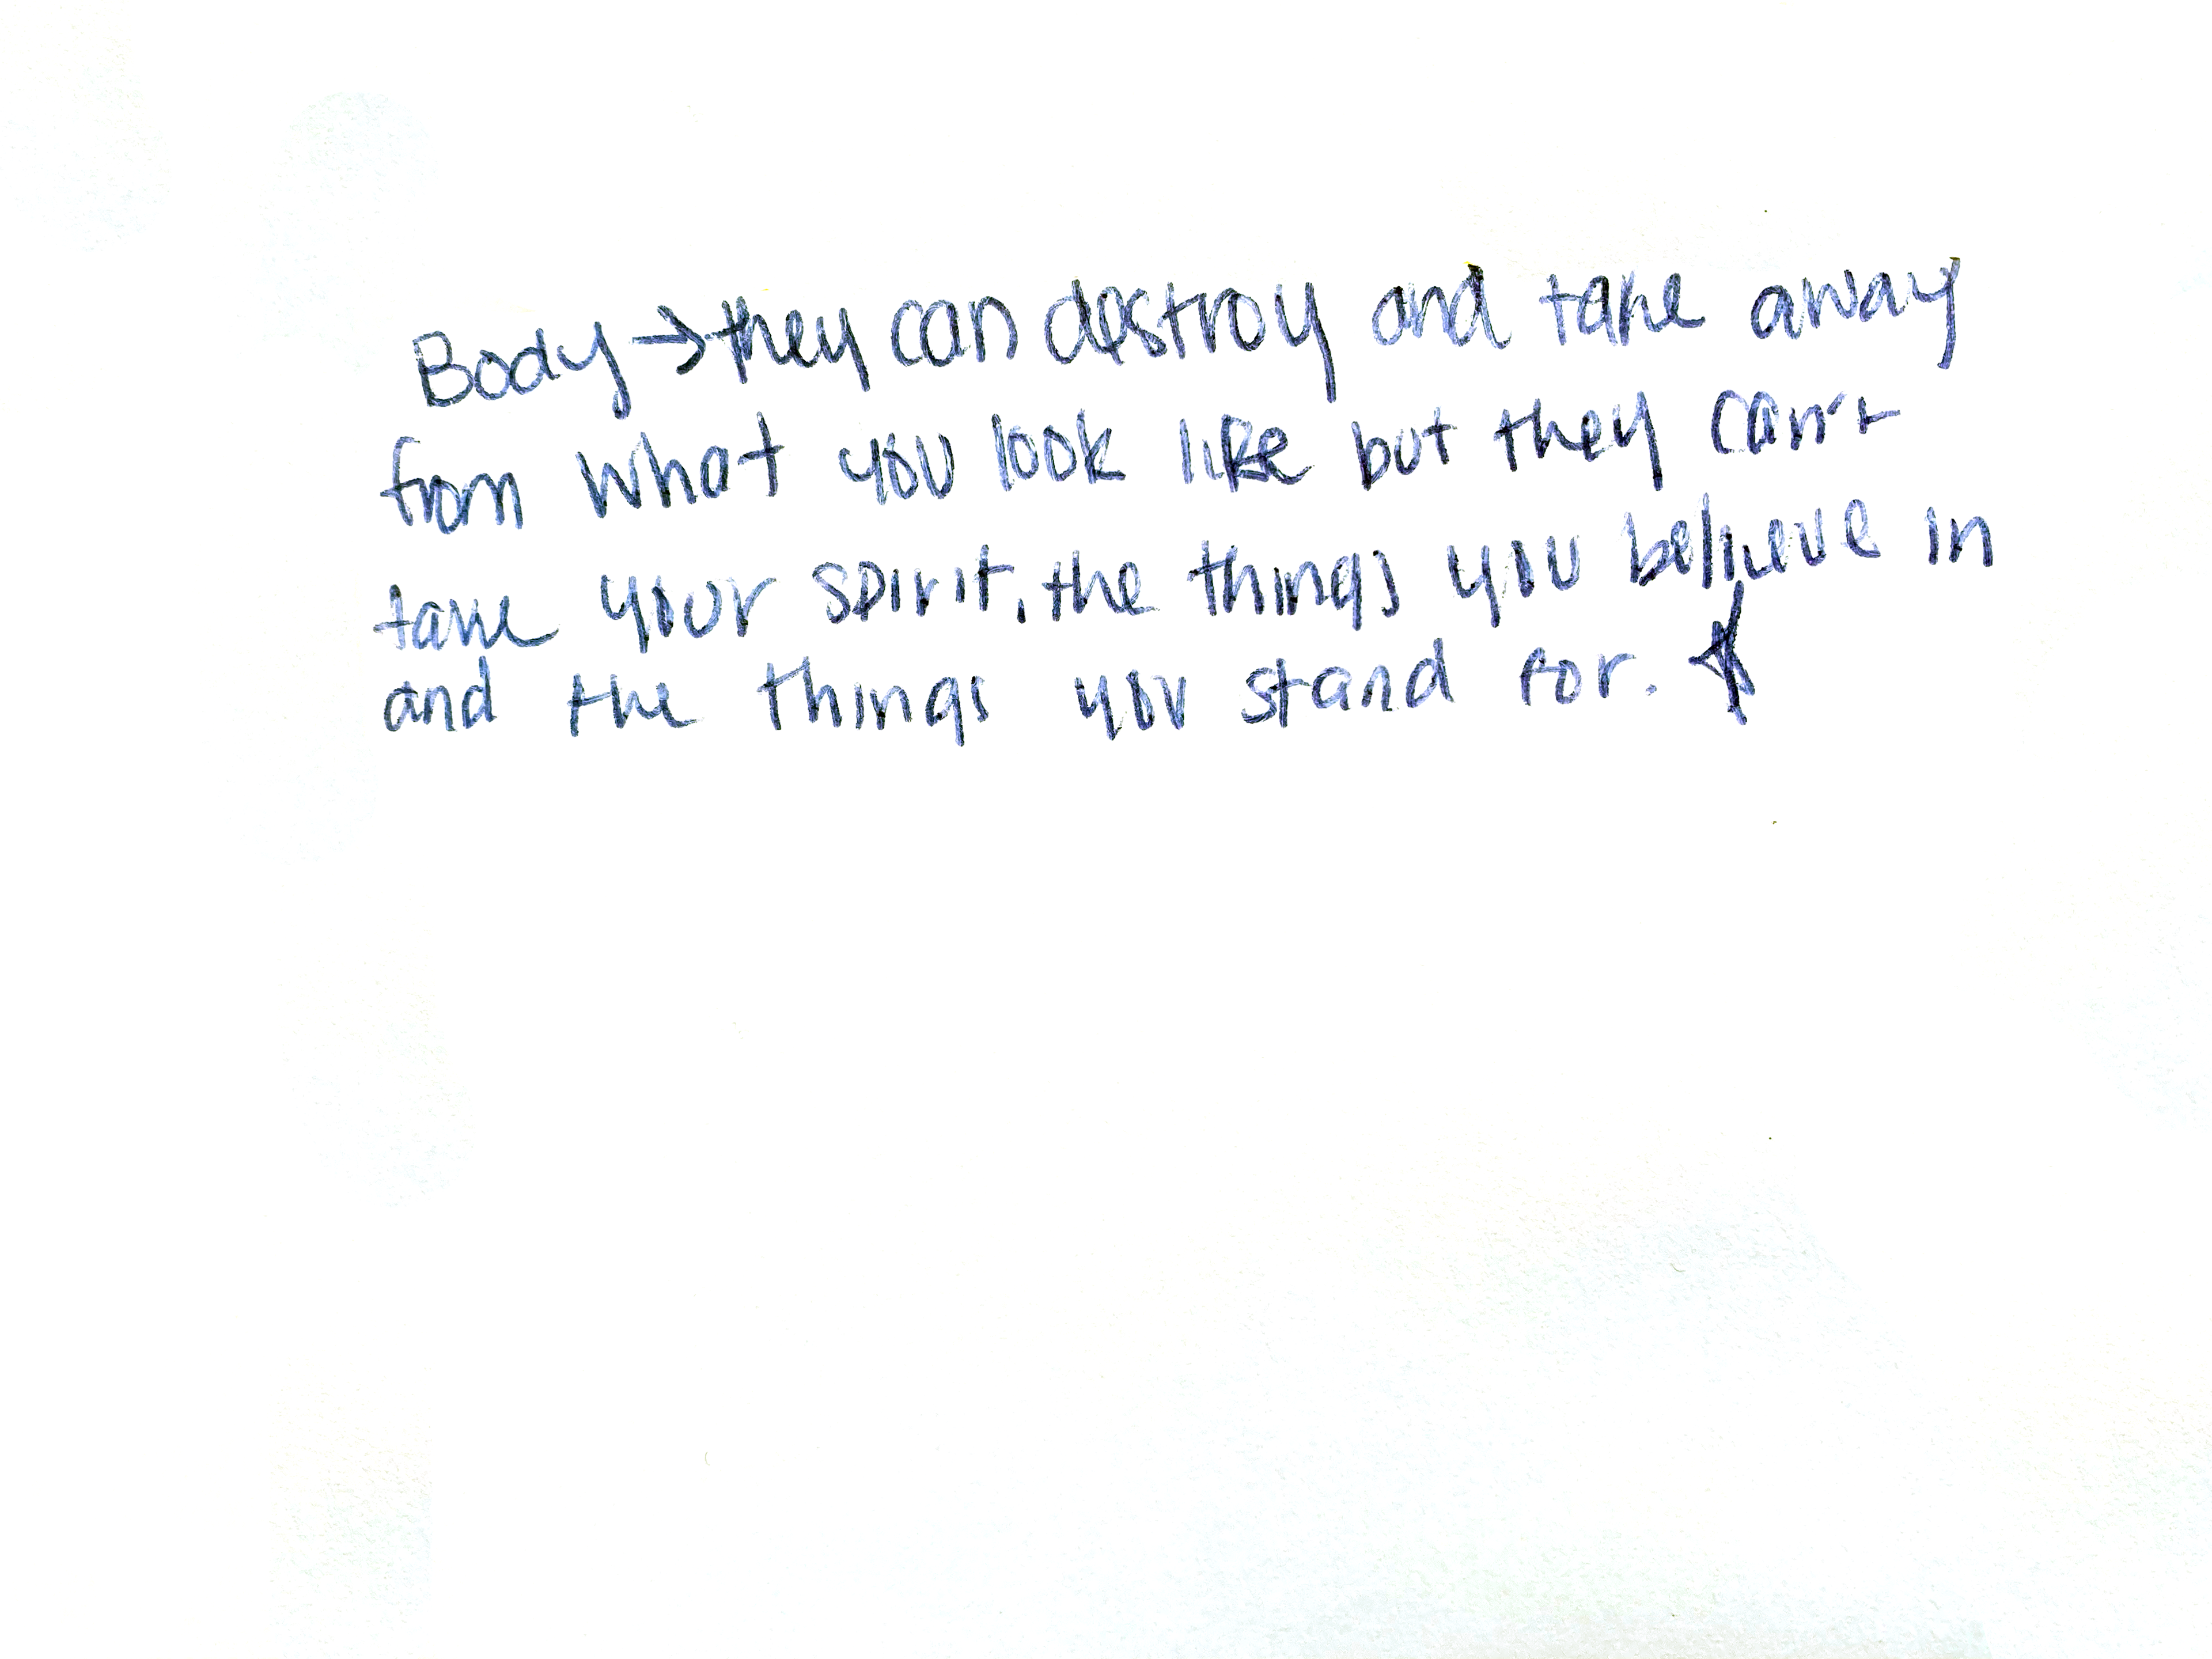 Body → they can destroy and take away
from what you look like but they can't
take your spirit, the things you believe in
and the things you stand for.